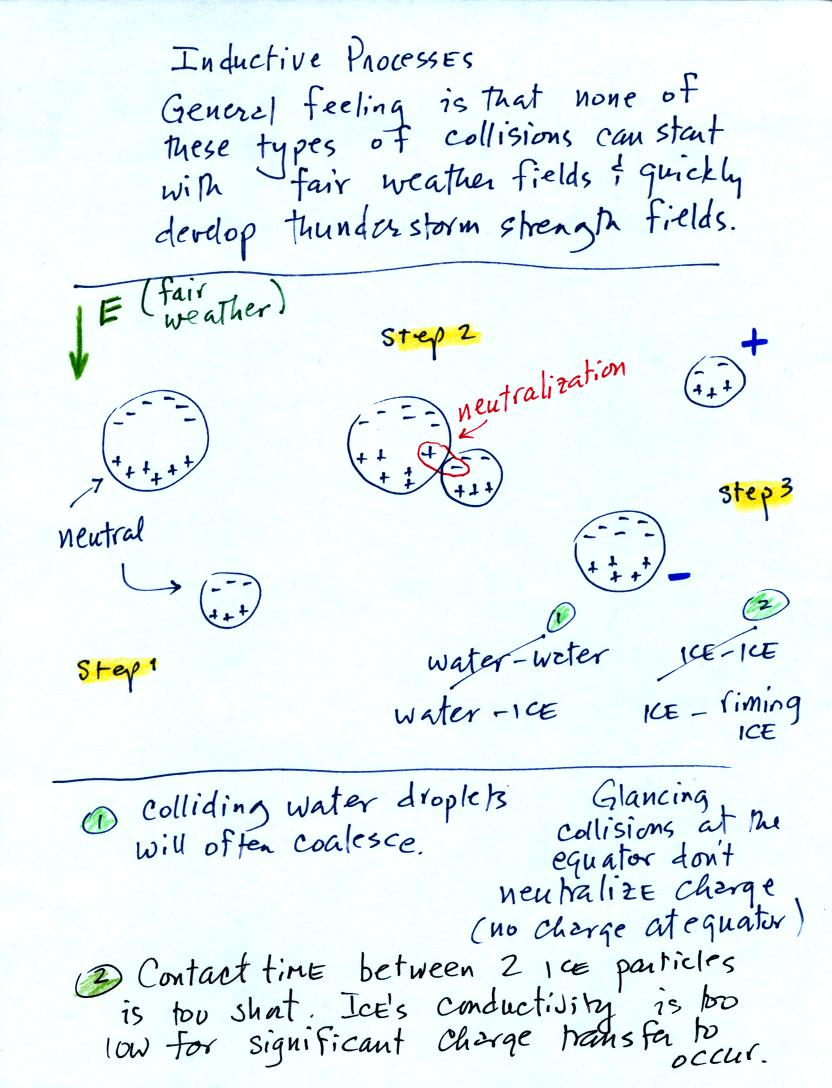 Inductive Processes
General feeling is that none of
these types of collisions can start
with fair weather fields & quickly
develop thunderstorm strength fields.
E (fair
weather)
Step 2
+
neutralization
- - - - - -
+ + + + + + +
neutral
- - -
+ + +
Step 1
- - - - -
+ + + + +
+
-
- -
+ + +
- -
+ + +
Step 3
- - - - -
+ + + + + +
-
1
2
water-water
water-ICE
ICE-ICE
ICE - riming
ICE
1 Colliding water droplets
will often coalesce.
Glancing
collisions at the
equator don't
neutralize charge
(no charge at equator)
2 Contact time between 2 ICE particles
is too short. ICE's conductivity is too
low for significant charge transfer to
occur.